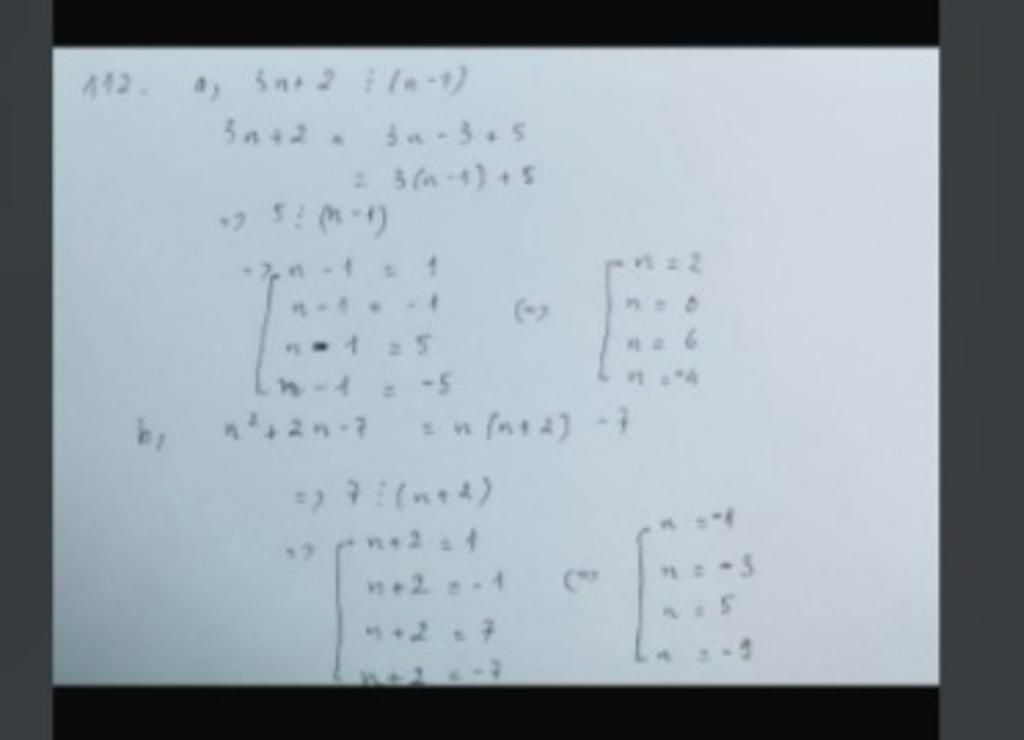 112. a, 3n+2 ⋮ (n-1)
3n+2 = 3n-3+5
= 3(n-1)+5
=> 5 ⋮ (n-1)
=> [ n-1 = 1
n-1 = -1 <=>
n-1 = 5
n-1 = -5
[ n = 2
n = 0
n = 6
n = -4
b, n²+2n-7 = n(n+2) -7
=> 7 ⋮ (n+2)
=> [ n+2 = 1
n+2 = -1 <=>
n+2 = 7
n+2 = -7
[ n = -1
n = -3
n = 5
n = -9